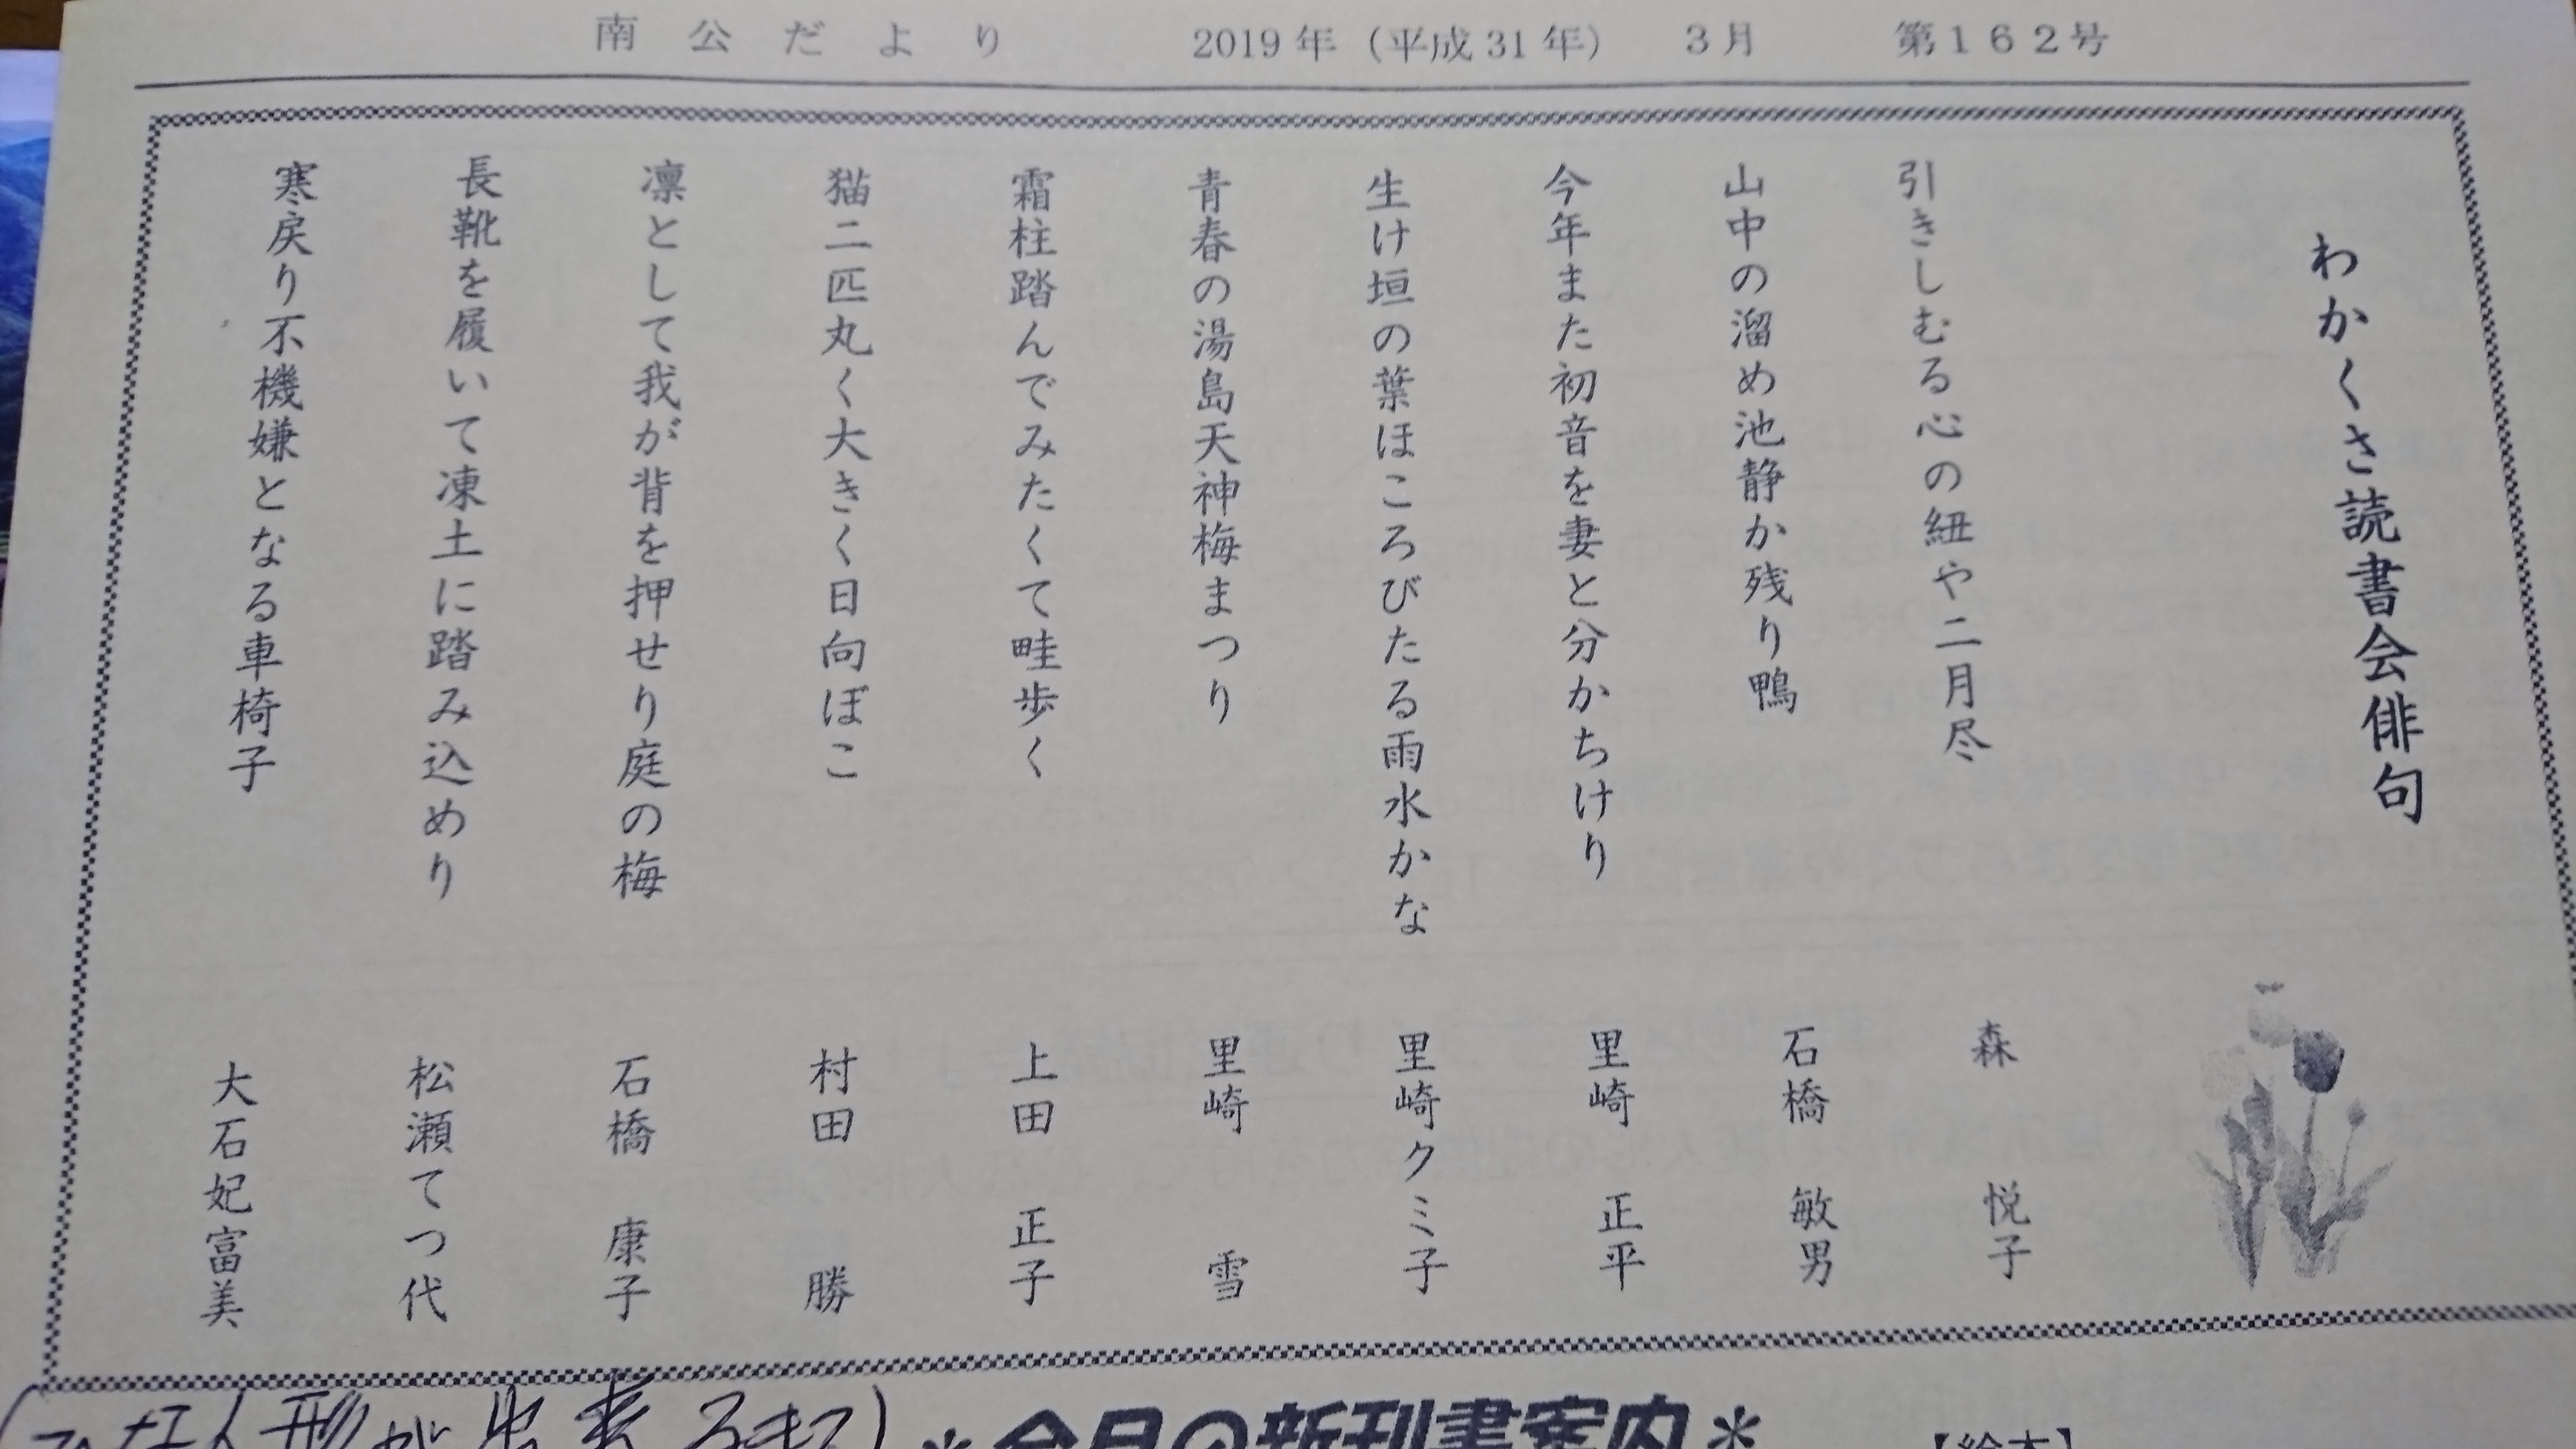 南公だより　2019年（平成31年）　3月　第162号
わかくさ読書会俳句
引きしむる心の紐や二月尽　森　悦子
山中の溜め池静か残り鴨　石橋　敏男
今年また初音を妻と分かちけり　里崎　正平
生け垣の葉ほころびたる雨水かな　里崎クミ子
青春の湯島天神梅まつり　里崎　雪
霜柱踏んでみたくて畦歩く　上田　正子
猫二匹丸く大きく日向ぼこ　村田　勝
凛として我が背を押せり庭の梅　石橋　康子
長靴を履いて凍土に踏み込めり　松瀬てつ代
寒戻り不機嫌となる車椅子　大石妃富美
(ひな人形が出来るまで)
＊今月の新刊書案内＊
【絵本】